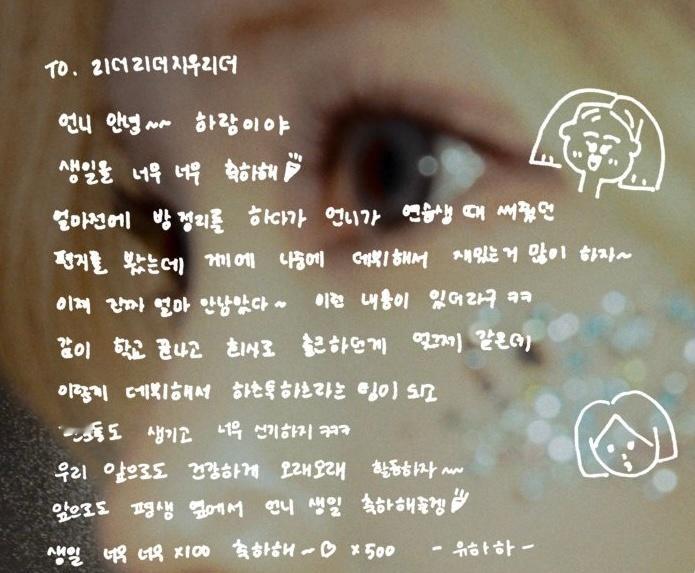 TO. 리더리더지우리더
언니 안녕~~ 하람이야
생일을 너무 너무 축하해
얼마전에 방정리를 하다가 언니가 연습생 때 써줬던
편지를 봤는데 거기에 나중에 데뷔해서 재밌는거 많이 하자~
이제 진짜 얼마 안남았다~ 이런 내용이 있더라구 ㅋㅋ
같이 학교 끝나고 회사로 출근하던게 엊그제 같은데
이렇게 데뷔해서 하츠투하츠라는 팀이 되고
생기고 너무 신기하지 ㅋㅋㅋ
우리 앞으로도 건강하게 오래오래 활동하자~~
앞으로도 평생 옆에서 언니 생일 축하해줄겡
생일 너무 너무 x100 축하해~♡ x500 - 유하하 -